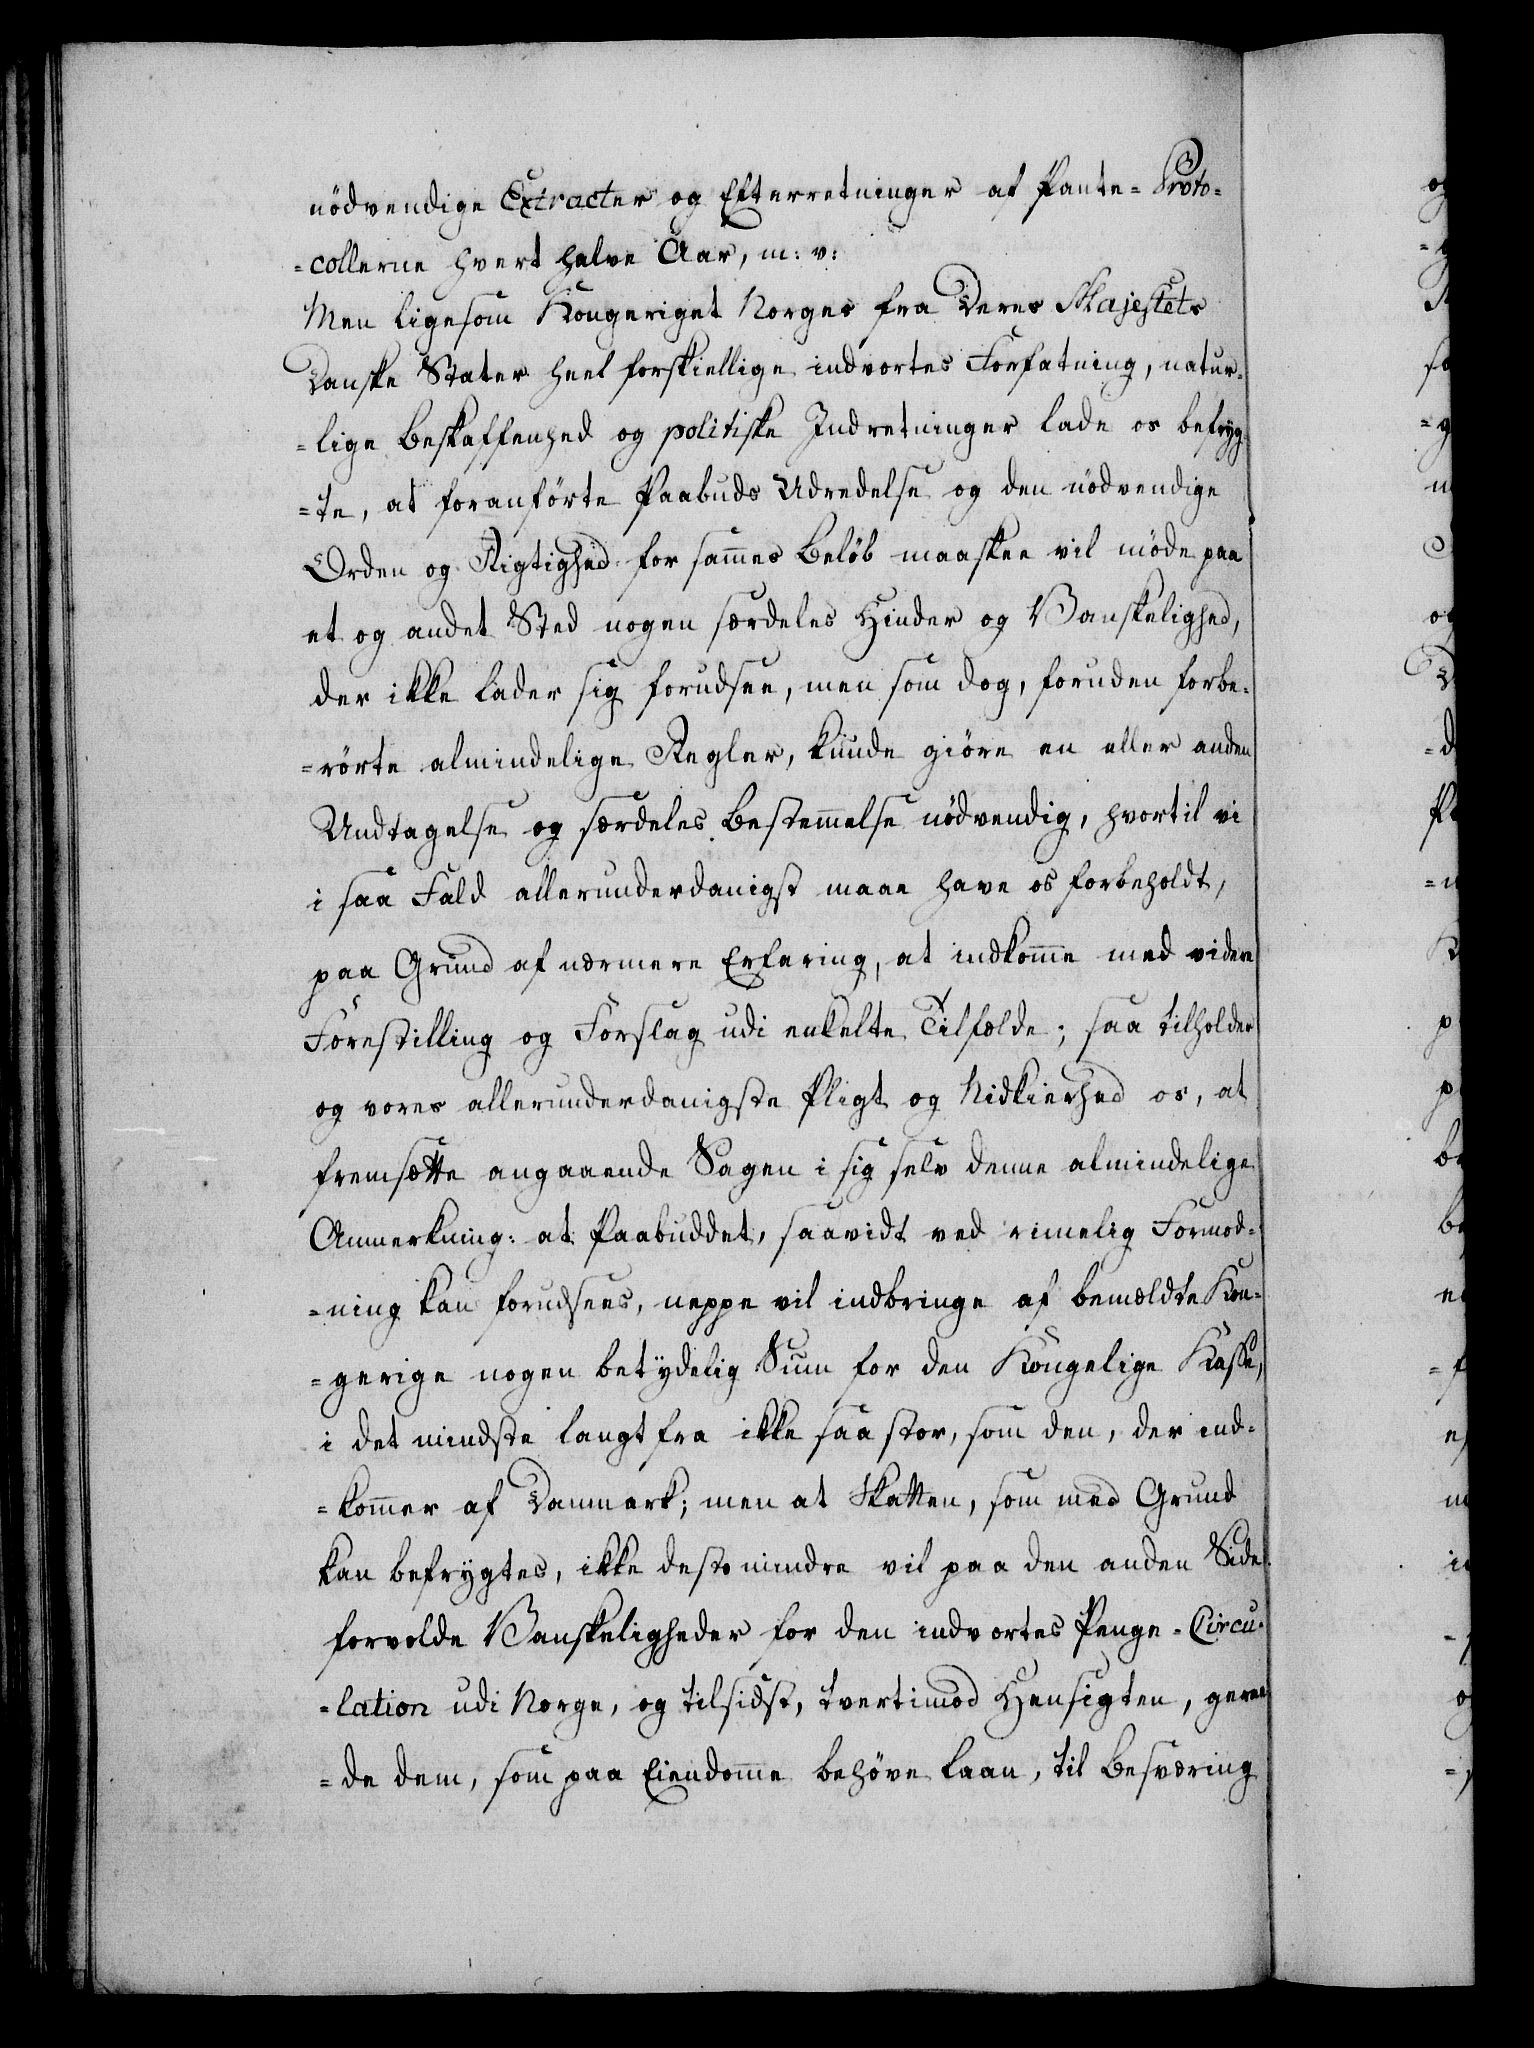 nödvendige Extracter og Efterretninger af Pante-Proto-
-collerne hvert halve Aar, m: v:
Men ligesom Kongeriget Norges fra Deres Majestets
Danske Stater heel forskiellige indvortes Forfatning, natur-
-lige Beskaffenhed og politiske Indretninger lade os befryg-
-te, at foranförte Paabuds Udredelse og den nödvendige
Orden og Rigtighed for sam̄es Belöb maaskee vil möde paa
et og andet Sted nogen særdeles Hinder og Vanskelighed,
der ikke lader sig forudsee, men som dog, foruden forbe-
-rörte almindelige Regler, kunde giöre en eller anden
Undtagelse og særdeles Bestem̄else nödvendig, hvortil vi
i saa Fald allerunderdanigst maae have os forbeholdt,
paa Grund af nærmere Erfaring, at indkom̄e med videre
Forestilling og Forslag udi enkelte Tilfælde; saa tilholder
og vores allerunderdanigste Pligt og Nidkierhed os, at
fremsætte angaaende Sagen i sig selv denne almindelige
Anmerkning: at Paabuddet, saavidt ved rimelig Formod-
-ning kan forudsees, neppe vil indbringe af bemældte Kon-
-gerige nogen betydelig Sum for den Kongelige Kasse,
i det mindste langt fra ikke saa stor, som den, der ind-
-kom̄er af Danmark; men at Skatten, som med Grund
kan befrygtes, ikke desto mindre vil paa den anden Side
forvolde Vanskeligheder for den indvortes Penge-Circu-
-lation udi Norge, og tilsidst, tvertimod Hensigten, geraa-
-de dem, som paa Eiendom̄e behöve Laan, til Besværing